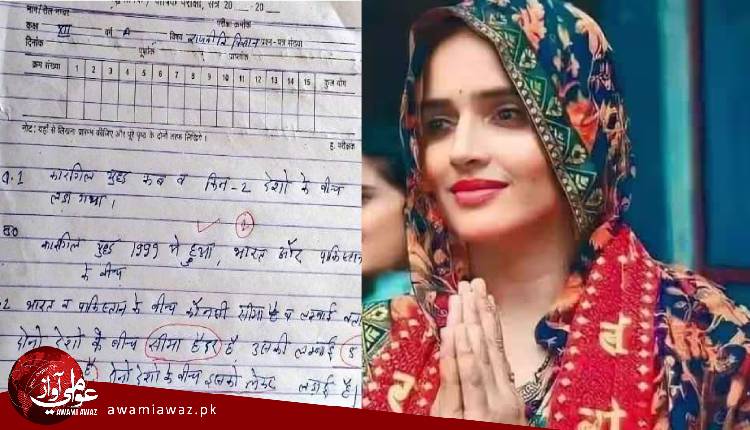 वार्षिक परीक्षा, सत्र 20 ...20...
नाम/रोल नम्बर
परीक्षा क्रमांक
कक्षा XII वर्ग A विषय विज्ञान प्रश्न-पत्र संख्या
दिनांक
पूर्णांक प्राप्तांक
क्रम संख्या 1 2 3 4 5 6 7 8 9 10 11 12 13 14 15 कुल योग
नोट: यहाँ से लिखना प्रारम्भ कीजिए और पूरे पृष्ठ के दोनों तरफ लिखिये।
ह. परीक्षक
Q.1 कारगिल युद्ध कब व किन-2 देशों के बीच
लड़ा गया।
कारगिल युद्ध 1999 में हुआ, भारत और पाकिस्तान
के बीच
2 भारत व पाकिस्तान के बीच कौनसी सीमा है व लम्बाई
दोनो देशों के बीच सीमा हैदर है उसकी लम्बाई 5
है दोनो देशों के बीच इसको लेकर लड़ाई है।
عوامی آواز
AWAMI AWAZ
awamiawaz.pk